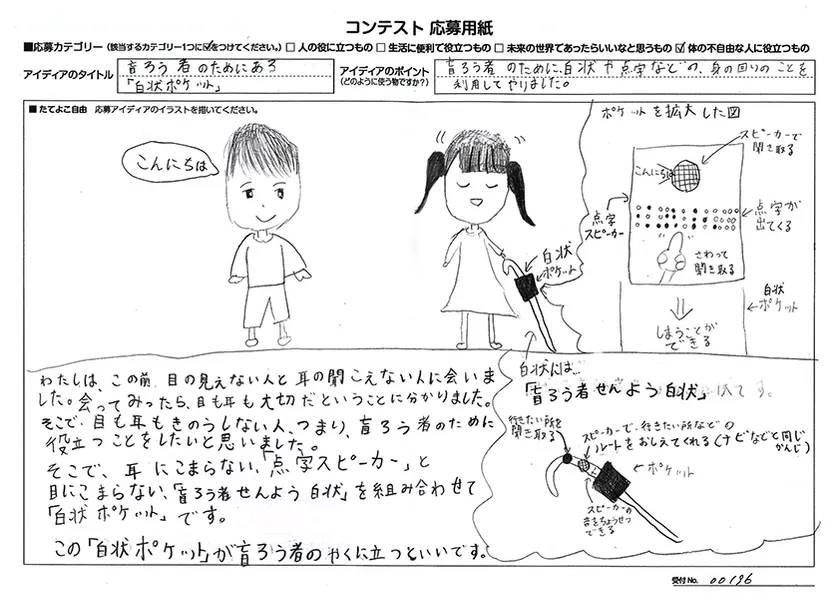 コンテスト 応募用紙
■応募カテゴリー(該当するカテゴリー1つに☑をつけてください。) □ 人の役に立つもの □ 生活に便利で役立つもの □ 未来の世界であったらいいなと思うもの ☑ 体の不自由な人に役立つもの
アイディアのタイトル
盲ろう者のためにある
「白状ポケット」
アイディアのポイント
(どのように使う物ですか?)
盲ろう者のために、白状や点字などの、身の回りのことを
利用してやりました。
■たてよこ自由 応募アイディアのイラストを描いてください。
こんにちは
白状
ポケット
ポケットを拡大した図
スピーカーで
聞き取る
こんにちは
点字
スピーカー
点字が
出てくる
さわって
聞き取る
白状
ポケット
しまうことが
できる
わたしは、この前、目の見えない人と耳の聞こえない人に会いま
した。会ってみったら、目も耳も大切だということに分かりました。
そこで、目も耳もきのうしない人、つまり、盲ろう者のために
役立つことをしたいと思いました。
そこで、耳にこまらない、「点字スピーカー」と
目にこまらない、「盲ろう者せんよう白状」を組み合わせて
「白状ポケット」です。
この「白状ポケット」が盲ろう者のやくに立つといいです。
白状には…
「盲ろう者せんよう白状」
行きたい所を
聞き取る
スピーカーで、行きたい所などの
ルートをおしえてくれる(ナビなどと同じ
かんじ)
ポケット
スピーカーの
音をちょうせつ
できる
受付No. 00196